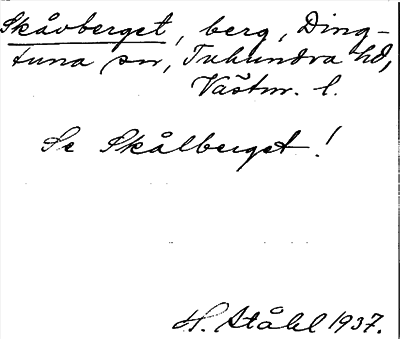 Skåvberget, berg, Ding-
tuna sn, Tuhundra hd,
Västm. l.
Se Skålberget!
H. Ståhl 1937.